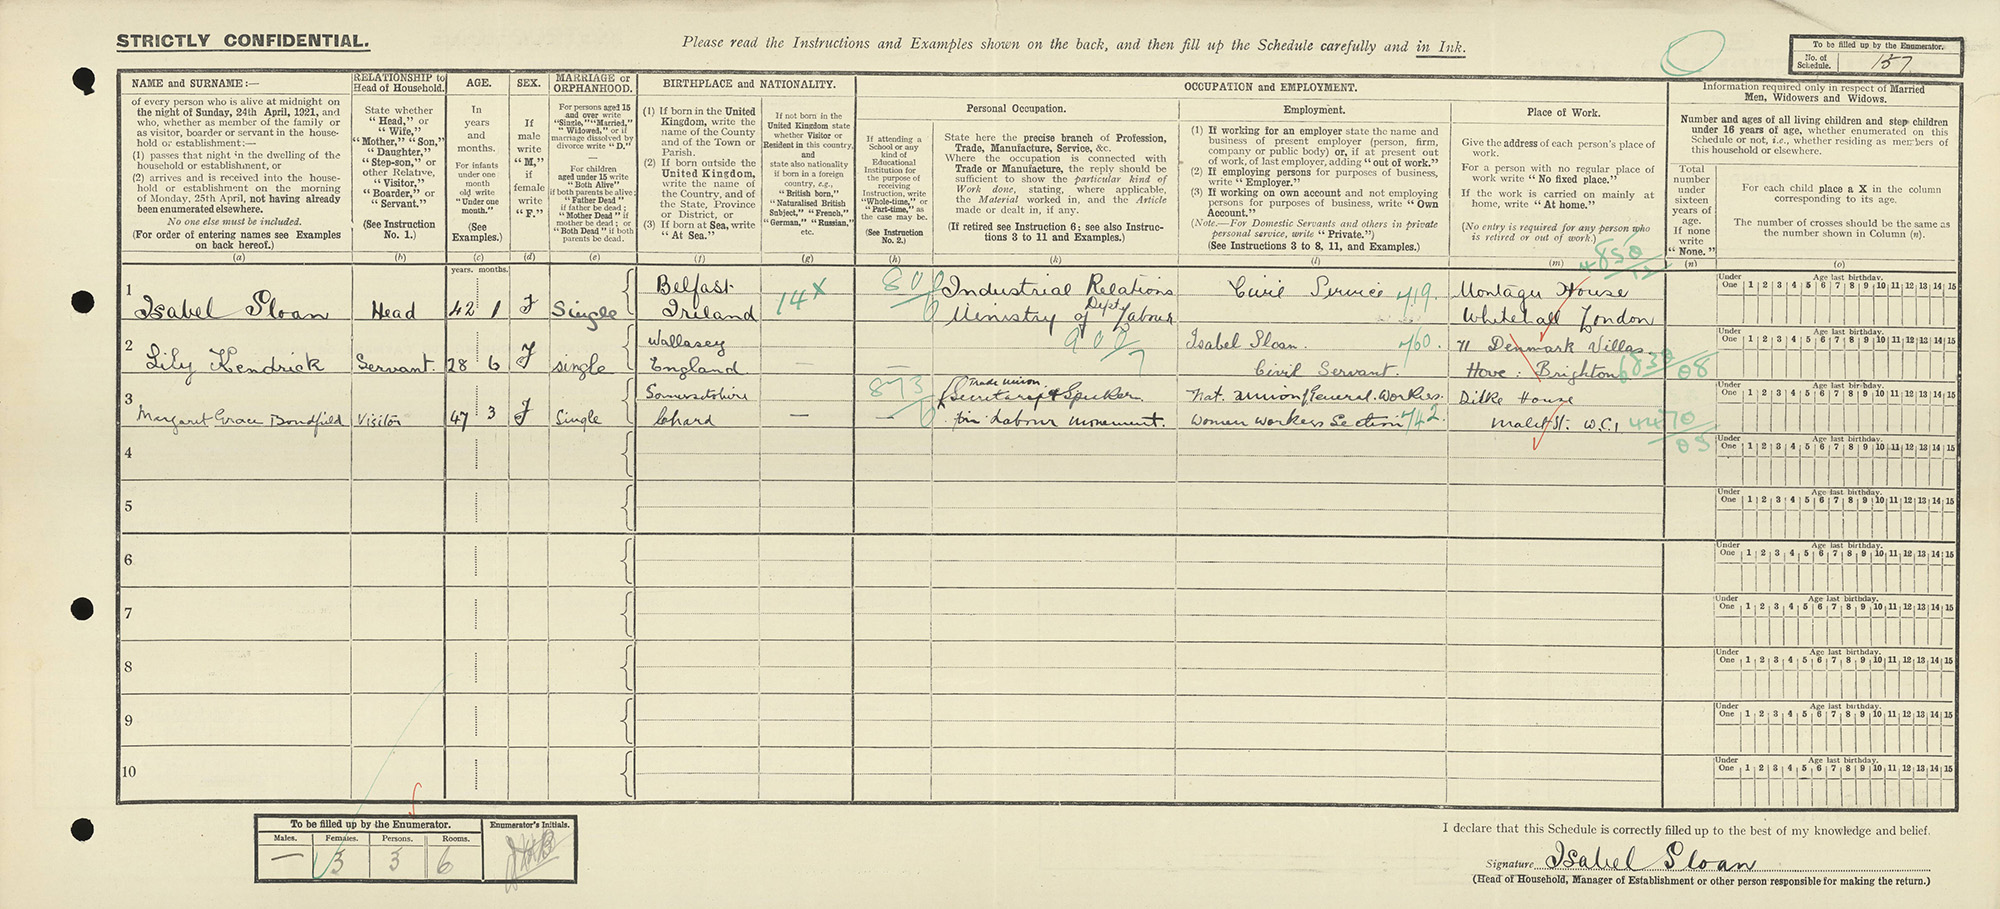 STRICTLY CONFIDENTIAL.
Please read the Instructions and Examples shown on the back, and then fill up the Schedule carefully and in Ink.
To be filled up by the Enumerator.
No. of Schedule. 157
NAME and SURNAME:—
of every person who is alive at midnight on
the night of Sunday, 24th April, 1921, and
who, whether as member of the family or
as visitor, boarder or servant in the house-
hold or establishment:—
(1) passes that night in the dwelling of the
household or establishment, or
(2) arrives and is received into the house-
hold or establishment on the morning
of Monday, 25th April, not having already
been enumerated elsewhere.
No one else must be included.
(For order of entering names see Examples
on back hereof.)
(a)
RELATIONSHIP to
Head of Household.
State whether
"Head," or
"Wife,"
"Mother," "Son,"
"Daughter,"
"Step-son," or
other Relative,
"Visitor,"
"Boarder," or
"Servant."
(See Instruction
No. 1.)
(b)
AGE.
In
years
and
months.
For infants
under one
month
old write
"Under one
month."
(See
Examples.)
(c)
SEX.
If
male
write
"M,"
if
female
write
"F."
(d)
MARRIAGE or
ORPHANHOOD.
For persons aged 15
and over write
"Single," "Married,"
"Widowed," or if
marriage dissolved by
divorce write "D."
—
For children
aged under 15 write
"Both Alive"
if both parents be alive;
"Father Dead"
if father be dead;
"Mother Dead" if
mother be dead;
"Both Dead" if both
parents be dead.
(e)
BIRTHPLACE and NATIONALITY.
(1) If born in the United
Kingdom, write the
name of the County
and of the Town or
Parish.
(2) If born outside the
United Kingdom,
write the name of
the Country, and of
the State, Province
or District, or
(3) If born at Sea, write
"At Sea."
(f)
If not born in the
United Kingdom state
whether Visitor or
Resident in this country,
and
state also nationality
if born in a foreign
country, e.g.,
"British born,"
"Naturalised British
Subject," "French,"
"German," "Russian,"
etc.
(g)
OCCUPATION and EMPLOYMENT.
If attending a
School or any
kind of
Educational
Institution for
the purpose of
receiving
Instruction, write
"Whole-time," or
"Part-time," as
the case may be.
(See Instruction
No. 2.)
(h)
Personal Occupation.
State here the precise branch of Profession,
Trade, Manufacture, Service, &c.
Where the occupation is connected with
Trade or Manufacture, the reply should be
sufficient to show the particular kind of
Work done, stating, where applicable,
the Material worked in, and the Article
made or dealt in, if any.
(If retired see Instruction 6; see also Instruc-
tions 3 to 11 and Examples.)
(k)
Employment.
(1) If working for an employer state the name and
business of present employer (person, firm,
company or public body) or, if at present out
of work, of last employer, adding "out of work."
(2) If employing persons for purposes of business,
write "Employer."
(3) If working on own account and not employing
persons for purposes of business, write "Own
Account."
(Note.—For Domestic Servants and others in private
personal service, write "Private.")
(See Instructions 3 to 8, 11, and Examples.)
(l)
Place of Work.
Give the address of each person's place of
work.
For a person with no regular place of
work write "No fixed place."
If the work is carried on mainly at
home, write "At home."
(No entry is required for any person who
is retired or out of work.)
(m)
Information required only in respect of Married
Men, Widowers and Widows.
Number and ages of all living children and step children
under 16 years of age, whether enumerated on this
Schedule or not, i.e., whether residing as members of
this household or elsewhere.
Total
number
under
sixteen
years of
age.
If none
write
"None."
(n)
For each child place a X in the column
corresponding to its age.
The number of crosses should be the same as
the number shown in Column (n).
(o)
4850/12
years. months.
1 Isabel Sloan Head 42 1 F Single Belfast Ireland 14 x 800/0 Industrial Relations Dept Ministry of Labour Civil Service 719. Montagu House Whitehall London
Under One Age last birthday. 1 2 3 4 5 6 7 8 9 10 11 12 13 14 15
2 Lily Kendrick Servant. 28 6 F single Wallasey England — — 900/7 Isabel Sloan. Civil Servant. 760. 11 Denmark Villas Hove: Brighton
Under One Age last birthday. 1 2 3 4 5 6 7 8 9 10 11 12 13 14 15
3 Margaret Grace Bondfield Visitor 47 3 F Single Somersetshire Chard — 873/0 Trade Union Secretary & Speaker in Labour movement. Nat. Union General. Workers. Women Workers Section 742. Dilke House Malet St. W.C.1 4470/05
Under One Age last birthday. 1 2 3 4 5 6 7 8 9 10 11 12 13 14 15
4
Under One Age last birthday. 1 2 3 4 5 6 7 8 9 10 11 12 13 14 15
5
Under One Age last birthday. 1 2 3 4 5 6 7 8 9 10 11 12 13 14 15
6
Under One Age last birthday. 1 2 3 4 5 6 7 8 9 10 11 12 13 14 15
7
Under One Age last birthday. 1 2 3 4 5 6 7 8 9 10 11 12 13 14 15
8
Under One Age last birthday. 1 2 3 4 5 6 7 8 9 10 11 12 13 14 15
9
Under One Age last birthday. 1 2 3 4 5 6 7 8 9 10 11 12 13 14 15
10
Under One Age last birthday. 1 2 3 4 5 6 7 8 9 10 11 12 13 14 15
To be filled up by the Enumerator.
Males. Females. Persons. Rooms.
— 3 3 6
Enumerator's Initials.
I declare that this Schedule is correctly filled up to the best of my knowledge and belief.
Signature Isabel Sloan
(Head of Household, Manager of Establishment or other person responsible for making the return.)